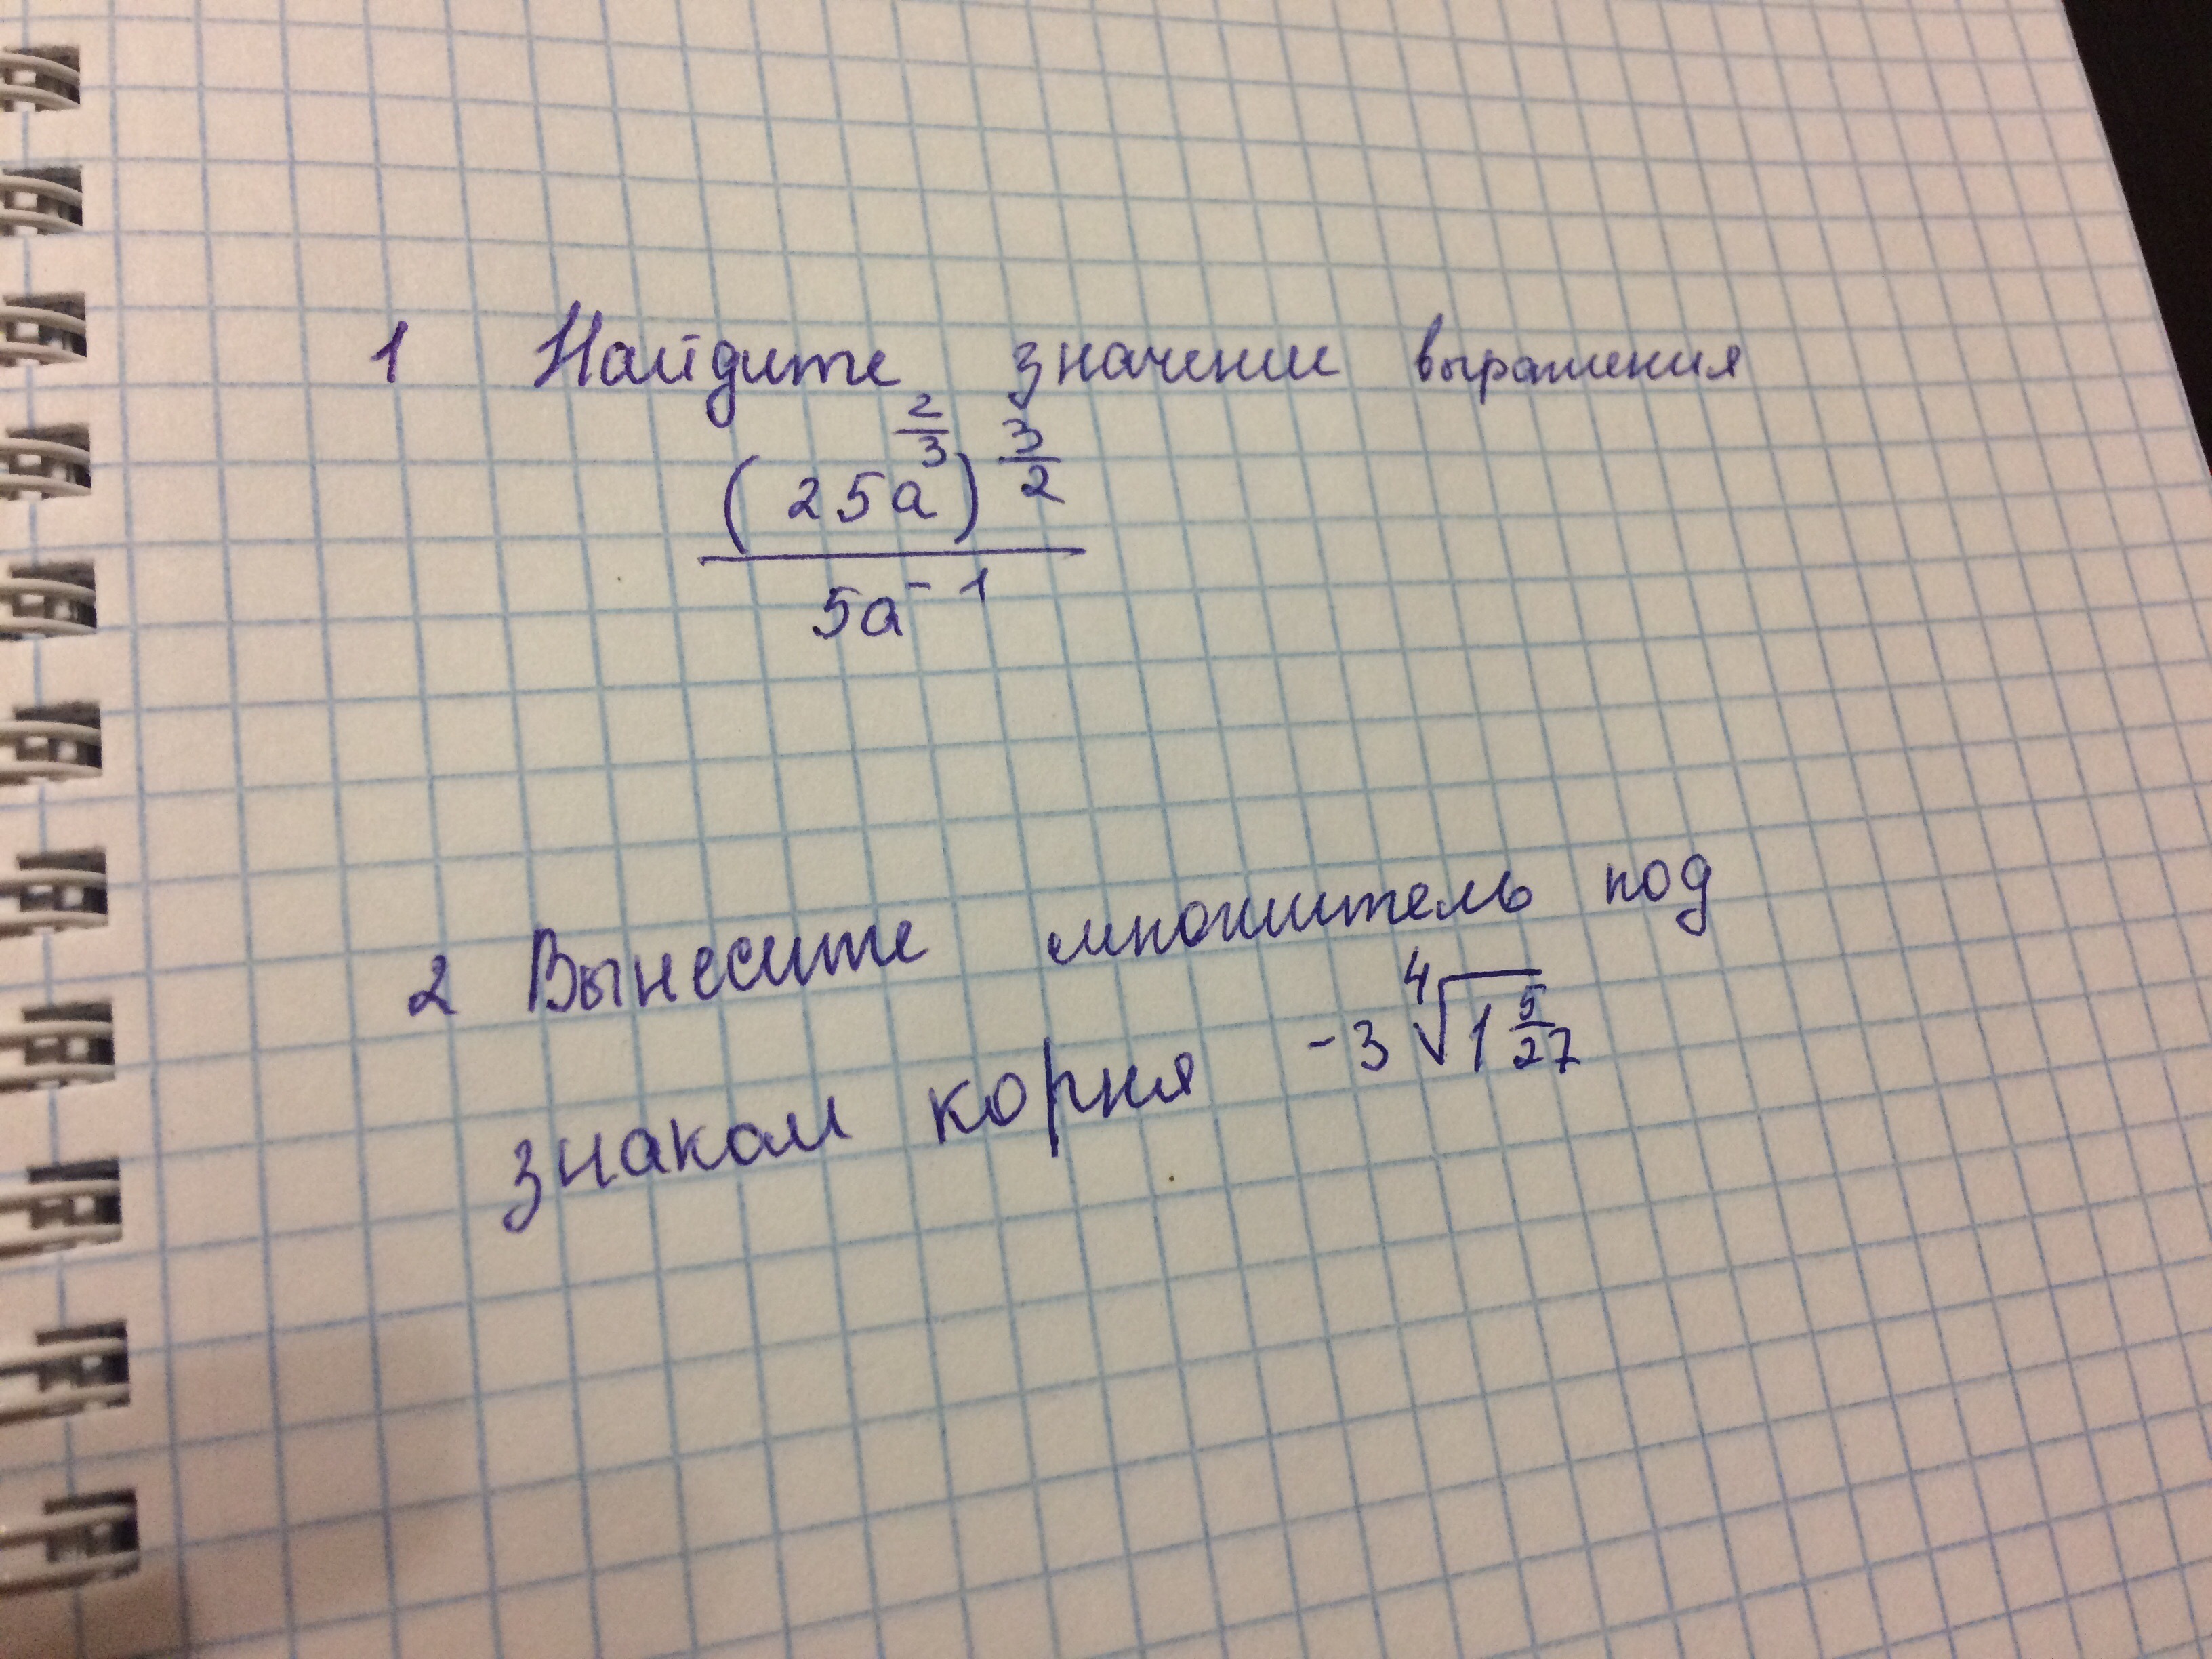 1 Найдите значении выражения
(25a^{2/3})^{3/2}
5a^{-1}
2 Вынесите множитель под
знаком корня -3 ⁴√1 5/27